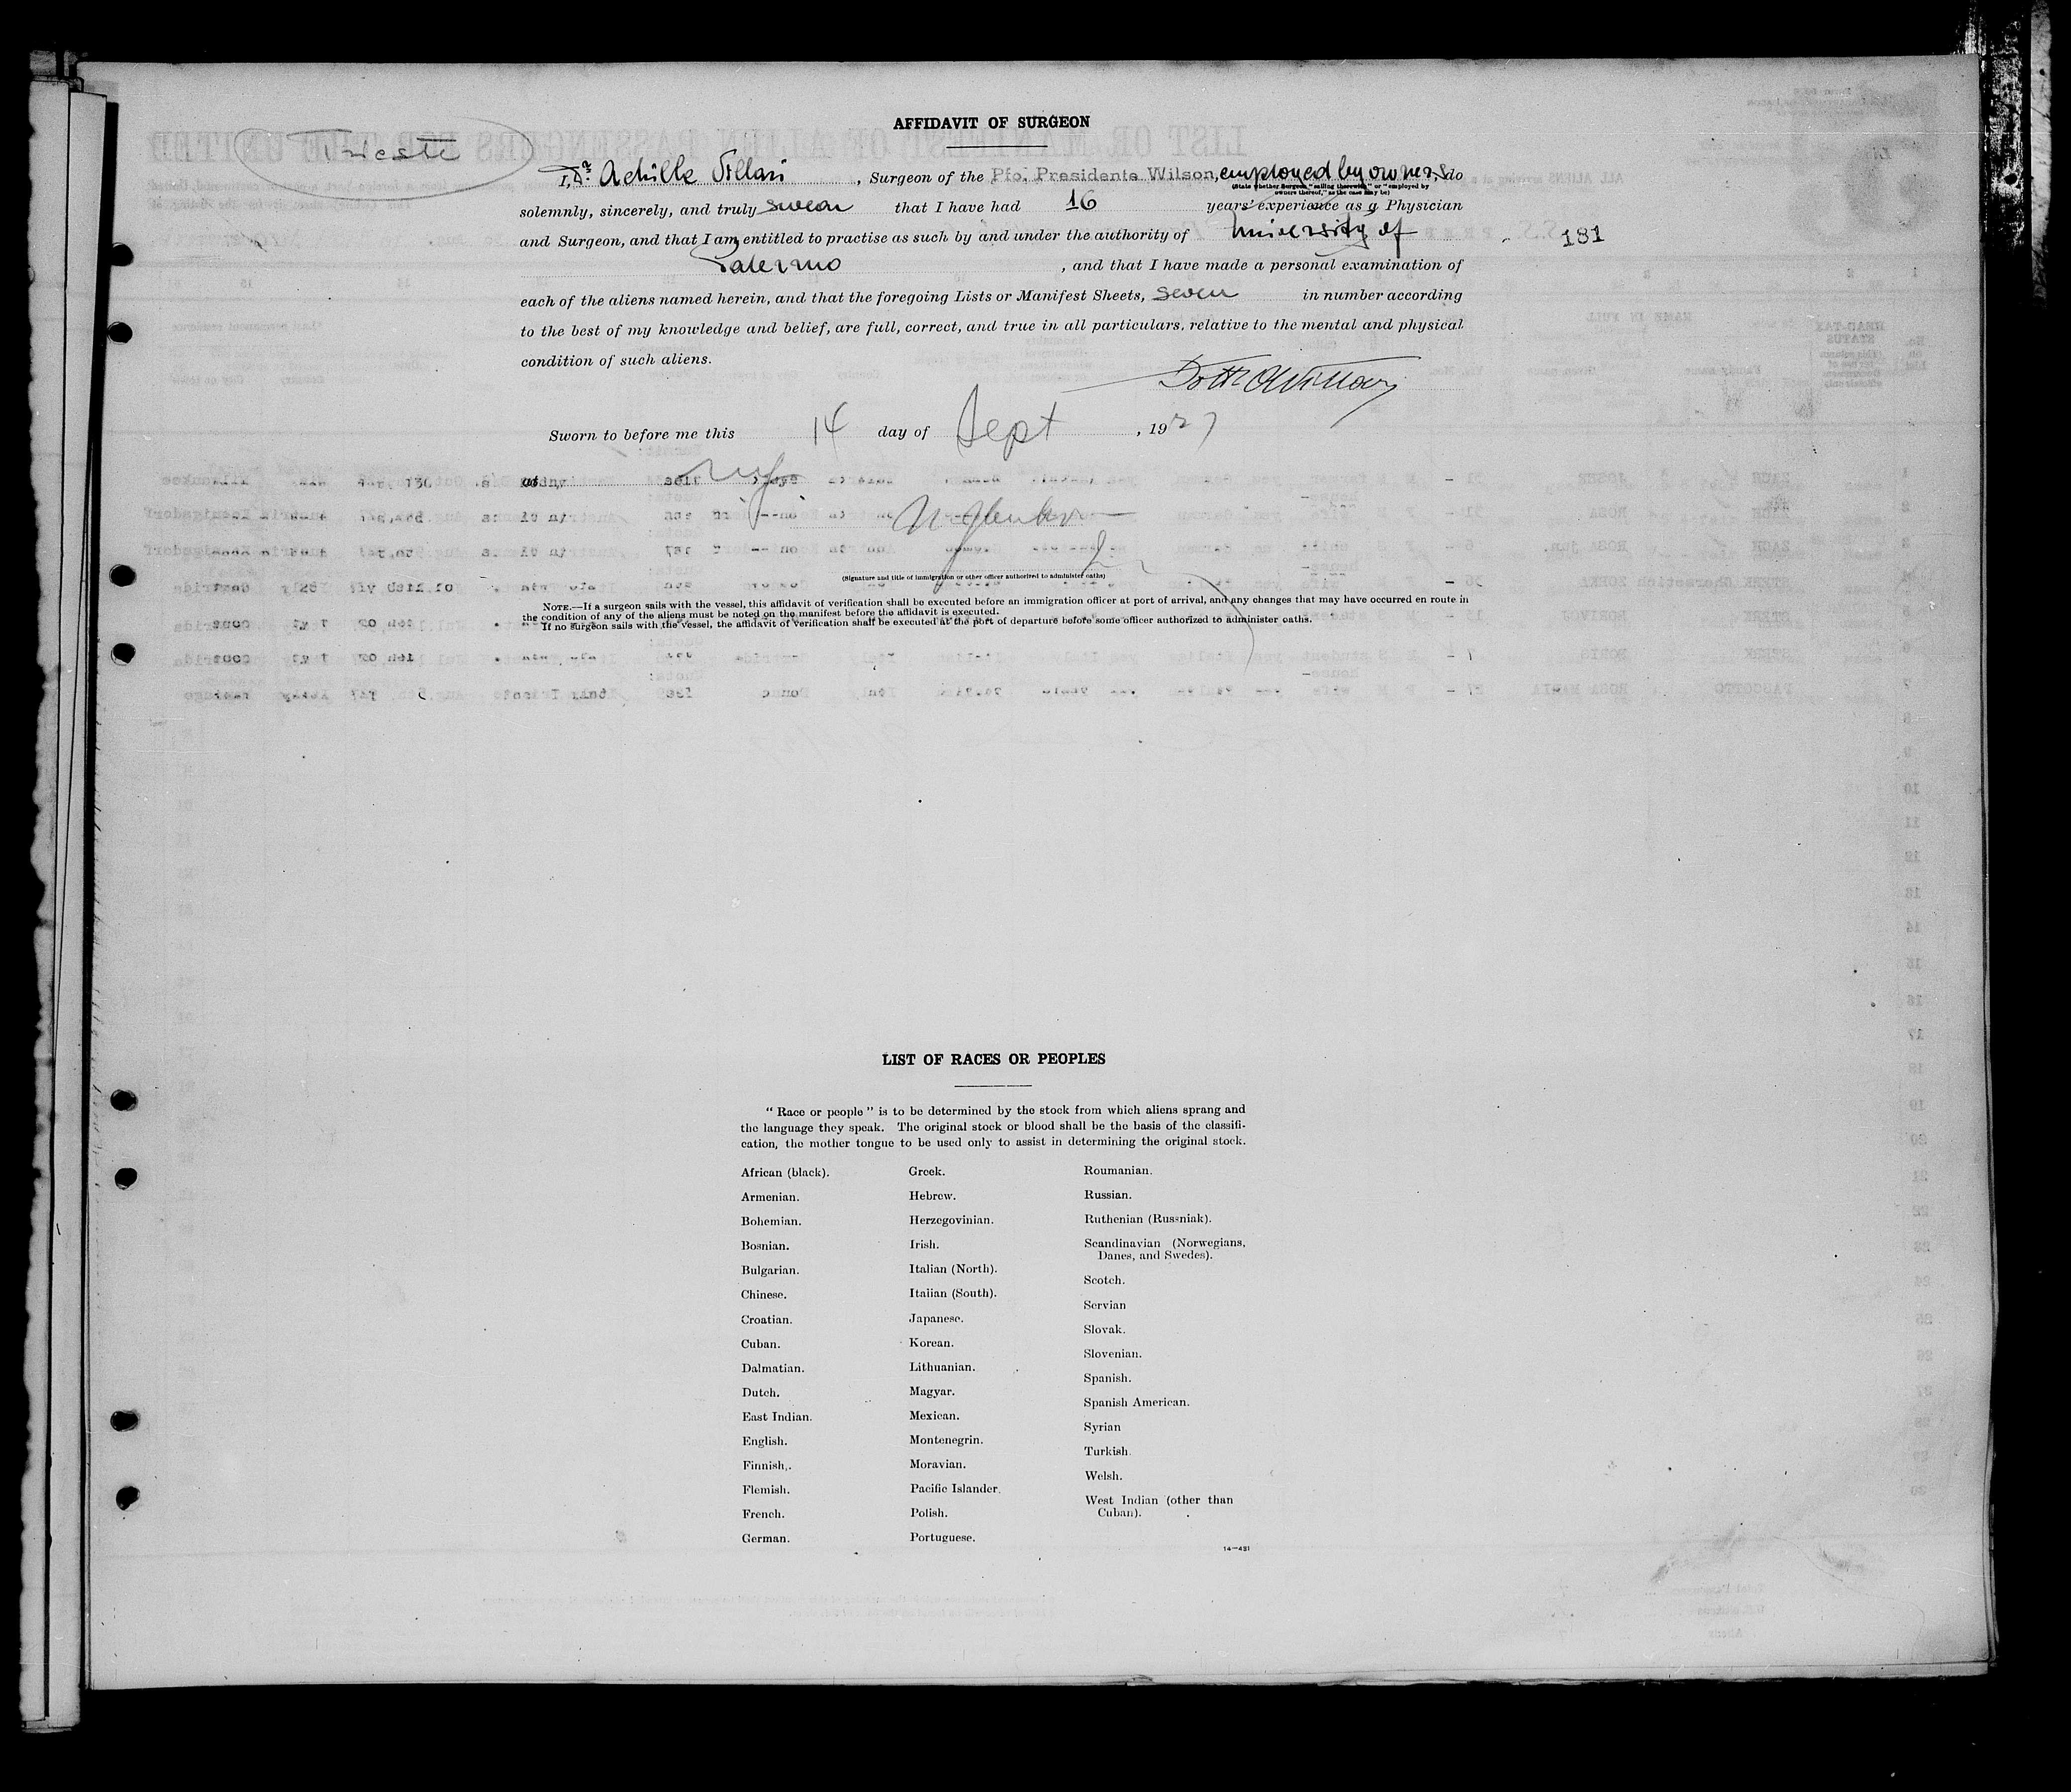 AFFIDAVIT OF SURGEON
Trieste
I, Dr Achille , Surgeon of the Pfo. Presidente Wilson, employed by owners, do
(State whether Surgeon "sailing therewith," or "employed by
owners thereof," as the case may be)
solemnly, sincerely, and truly swear that I have had 16 years' experience as a Physician
and Surgeon, and that I am entitled to practise as such by and under the authority of University of
181
Palermo , and that I have made a personal examination of
each of the aliens named herein, and that the foregoing Lists or Manifest Sheets, seven in number according
to the best of my knowledge and belief, are full, correct, and true in all particulars, relative to the mental and physical
condition of such aliens.
Sworn to before me this 14 day of Sept , 1927
at
(Signature and title of immigration or other officer authorized to administer oaths)
NOTE.—If a surgeon sails with the vessel, this affidavit of verification shall be executed before an immigration officer at port of arrival, and any changes that may have occurred en route in
the condition of any of the aliens must be noted on the manifest before the affidavit is executed.
If no surgeon sails with the vessel, the affidavit of verification shall be executed at the port of departure before some officer authorized to administer oaths.
LIST OF RACES OR PEOPLES
" Race or people " is to be determined by the stock from which aliens sprang and
the language they speak. The original stock or blood shall be the basis of the classifi-
cation, the mother tongue to be used only to assist in determining the original stock.
African (black).
Armenian.
Bohemian.
Bosnian.
Bulgarian.
Chinese.
Croatian.
Cuban.
Dalmatian.
Dutch.
East Indian.
English.
Finnish.
Flemish.
French.
German.
Greek.
Hebrew.
Herzegovinian.
Irish.
Italian (North).
Italian (South).
Japanese.
Korean.
Lithuanian.
Magyar.
Mexican.
Montenegrin.
Moravian.
Pacific Islander.
Polish.
Portuguese.
Roumanian.
Russian.
Ruthenian (Russniak).
Scandinavian (Norwegians,
Danes, and Swedes).
Scotch.
Servian
Slovak.
Slovenian.
Spanish.
Spanish American.
Syrian
Turkish.
Welsh.
West Indian (other than
Cuban).
14—431